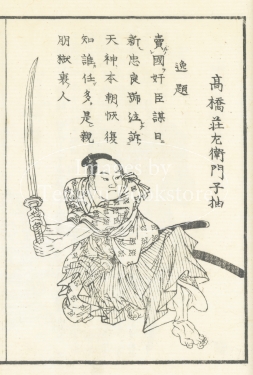 高橋荘左衛門子抽
逸題
賣國奸臣謀日
新忠良端泣訴
天神本朝恢復
知誰任多是親
朋獄裏人